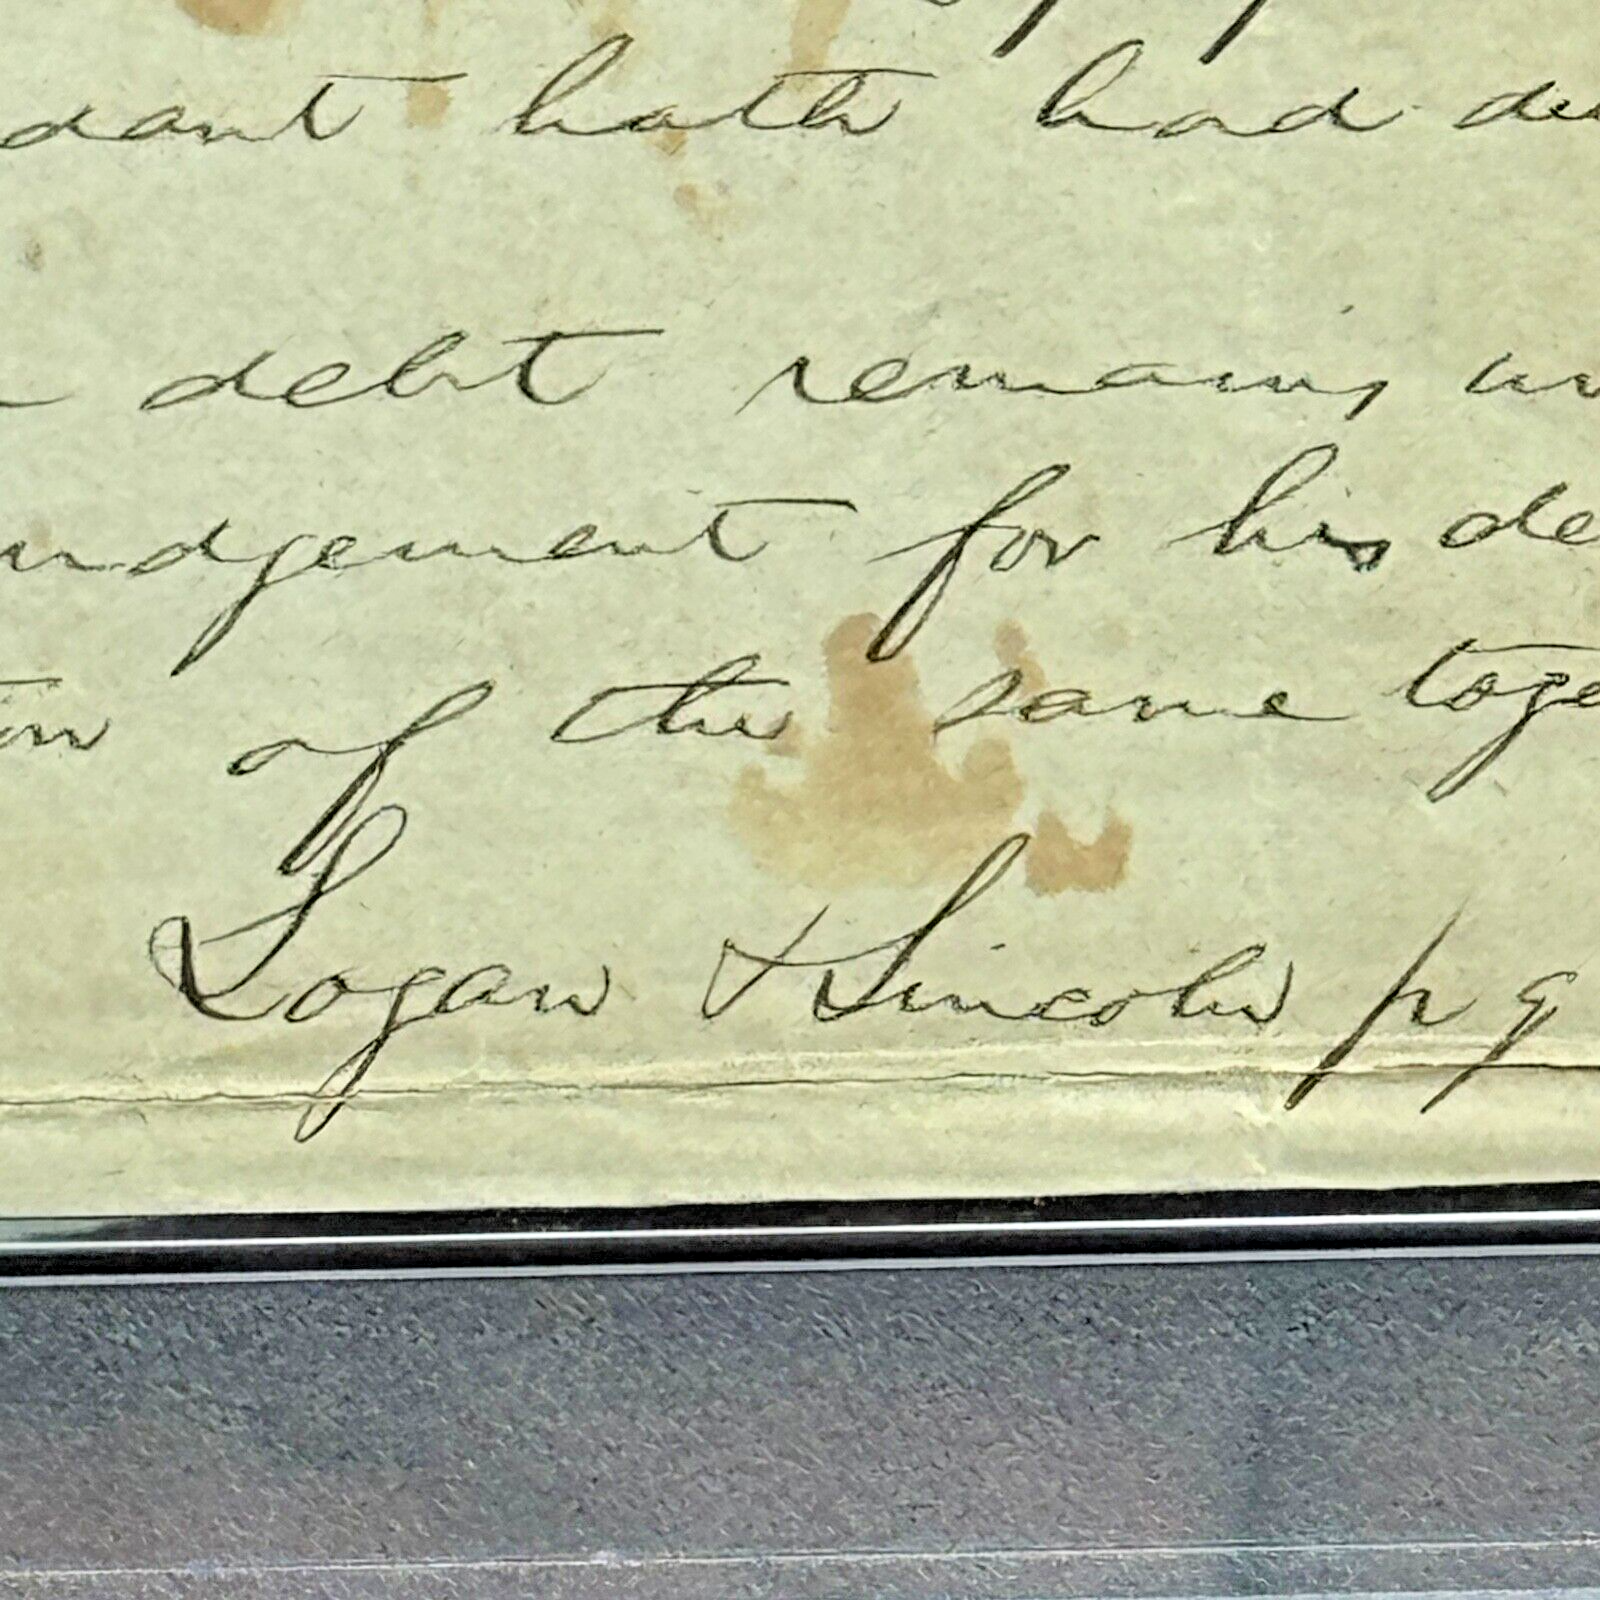 dant hath had
debt remains
udgement for his de
of the same toge
Logan & Lincoln p q